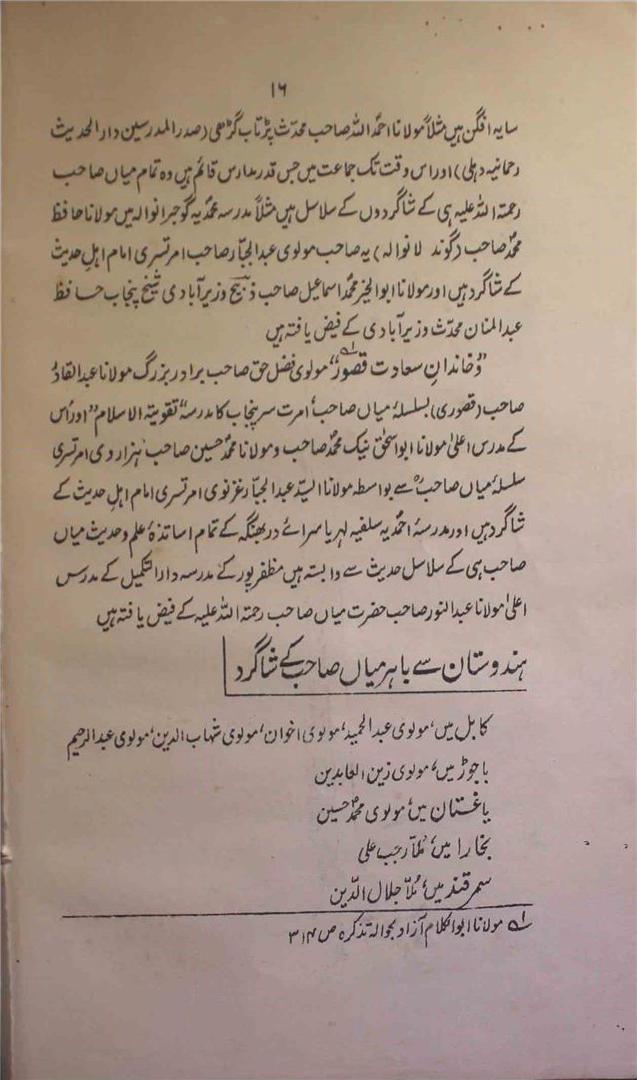 ۱۶
سایہ افگن ہیں مثلاً مولانا احمد اللہ صاحب محدّث پڑتاب گڑھی (صدر المدرسین دارالحدیث
رحمانیہ دہلی) اور اس وقت تک جماعت میں جس قدر مدارس قائم ہیں وہ تمام میاں صاحب
رحمتہ اللہ علیہ ہی کے شاگردوں کے سلاسل ہیں مثلاً مدرسہ محمدیہ گوجرانوالہ میں مولانا حافظ
محمدؐ صاحب (گوندلانوالہ) یہ صاحب مولوی عبدالجبّار صاحب امرتسری امام اہل حدیث
کے شاگرد ہیں اور مولانا ابوالخیر محمد اسماعیل صاحب ذبیح وزیرآبادی شیخ پنجاب حافظ
عبدالمنان محدّث وزیرآبادی کے فیض یافتہ ہیں
”خاندانِ سعادت قصور“ لہ مولوی فضل حق صاحب برادر بزرگ مولانا عبدالقادر
صاحب (قصوری) بسلسلۂ میاں صاحبؒ امرت سر پنجاب کا مدرسہ ”تقویتہ الاسلام“ اور اُس
کے مدرس اعلیٰ مولانا ابواسحٰق نیک محمدؐ صاحب و مولانا محمدؐ حسین صاحب ہزاروی امرتسری
سلسلۂ میاں صاحبؒ سے بواسطہ مولانا السیّد عبدالجبّار غزنوی امرتسری امام اہل حدیث کے
شاگرد ہیں اور مدرسۂ احمدیہ سلفیہ لہریا سرائے دربھنگہ کے تمام اساتذۂ علم و حدیث میاں
صاحب ہی کے سلاسل حدیث سے وابستہ ہیں مظفرپور کے مدرسہ دارالتکمیل کے مدرس
اعلیٰ مولانا عبدالنور صاحب حضرت میاں صاحب رحمتہ اللہ علیہ کے فیض یافتہ ہیں
ہندوستان سے باہر میاں صاحب کے شاگرد
کابل میں، مولوی عبدالحمید، مولوی اخوان، مولوی شہاب الدین، مولوی عبدالرحیم
باجوڑ میں، مولوی زین العابدین
یاغستان میں، مولوی محمدؐ حسین
بخارا میں، مُلّا رجب علی
سمرقند میں، مُلّا جلال الدّین
لہ مولانا ابوالکلام آزاد بحوالہ تذکرہ ص ۳۱۴